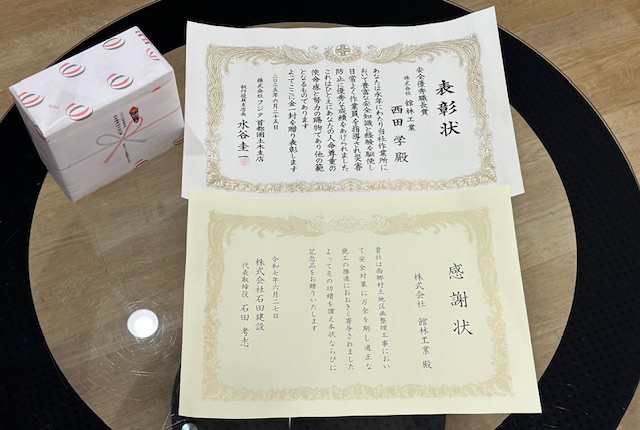 表彰状
安全優秀職長賞
株式会社 館林工業
西田 学 殿
あなたは永年にわたり当社作業所に
おいて豊富な安全知識と経験を駆使し
日常よく作業員を指導され災害
防止に優秀な成績をあげられました
これはひとえにあなたの人命尊重の
使命感と努力の賜物であり他の範
となるものであります
よってここに金一封を贈り表彰します
二〇二五年六月二十五日
株式会社フジタ 首都圏土木支店
執行役員支店長 水谷 圭一
感謝状
株式会社 館林工業 殿
貴社は西郷村土地区画整理工事におい
て安全対策に万全を期し適正な
施工の推進におおきく寄与されました
よってその功績を讃え本状ならびに
記念品をお贈りいたします
令和七年六月二七日
株式会社石田建設
代表取締役 石田 考志